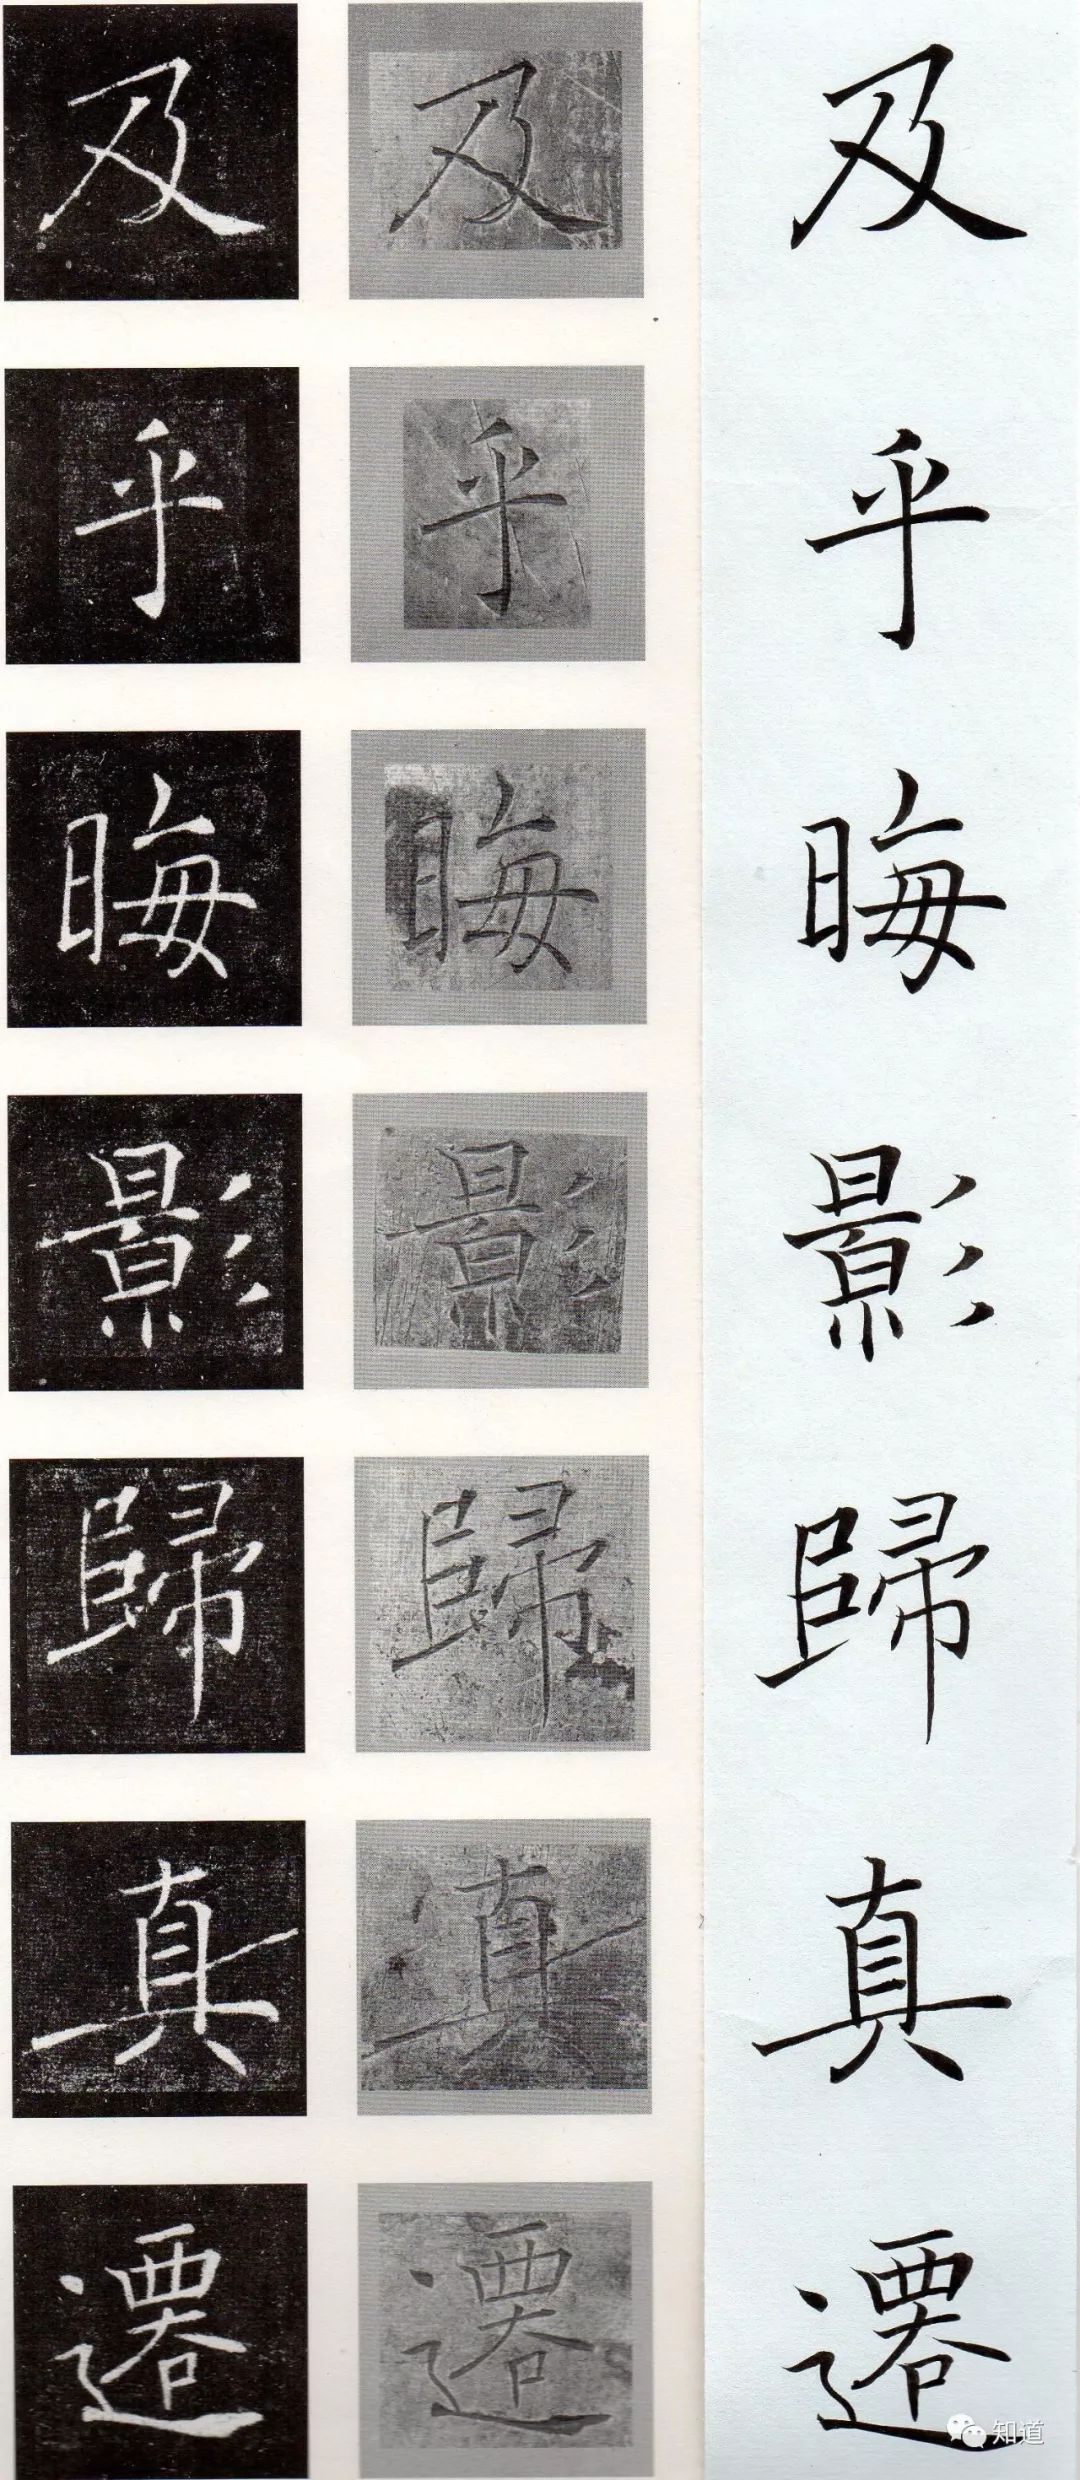 及 及 及
乎 乎 乎
晦 晦 晦
影 影 影
歸 歸 歸
真 真 真
遷 遷 遷
知道